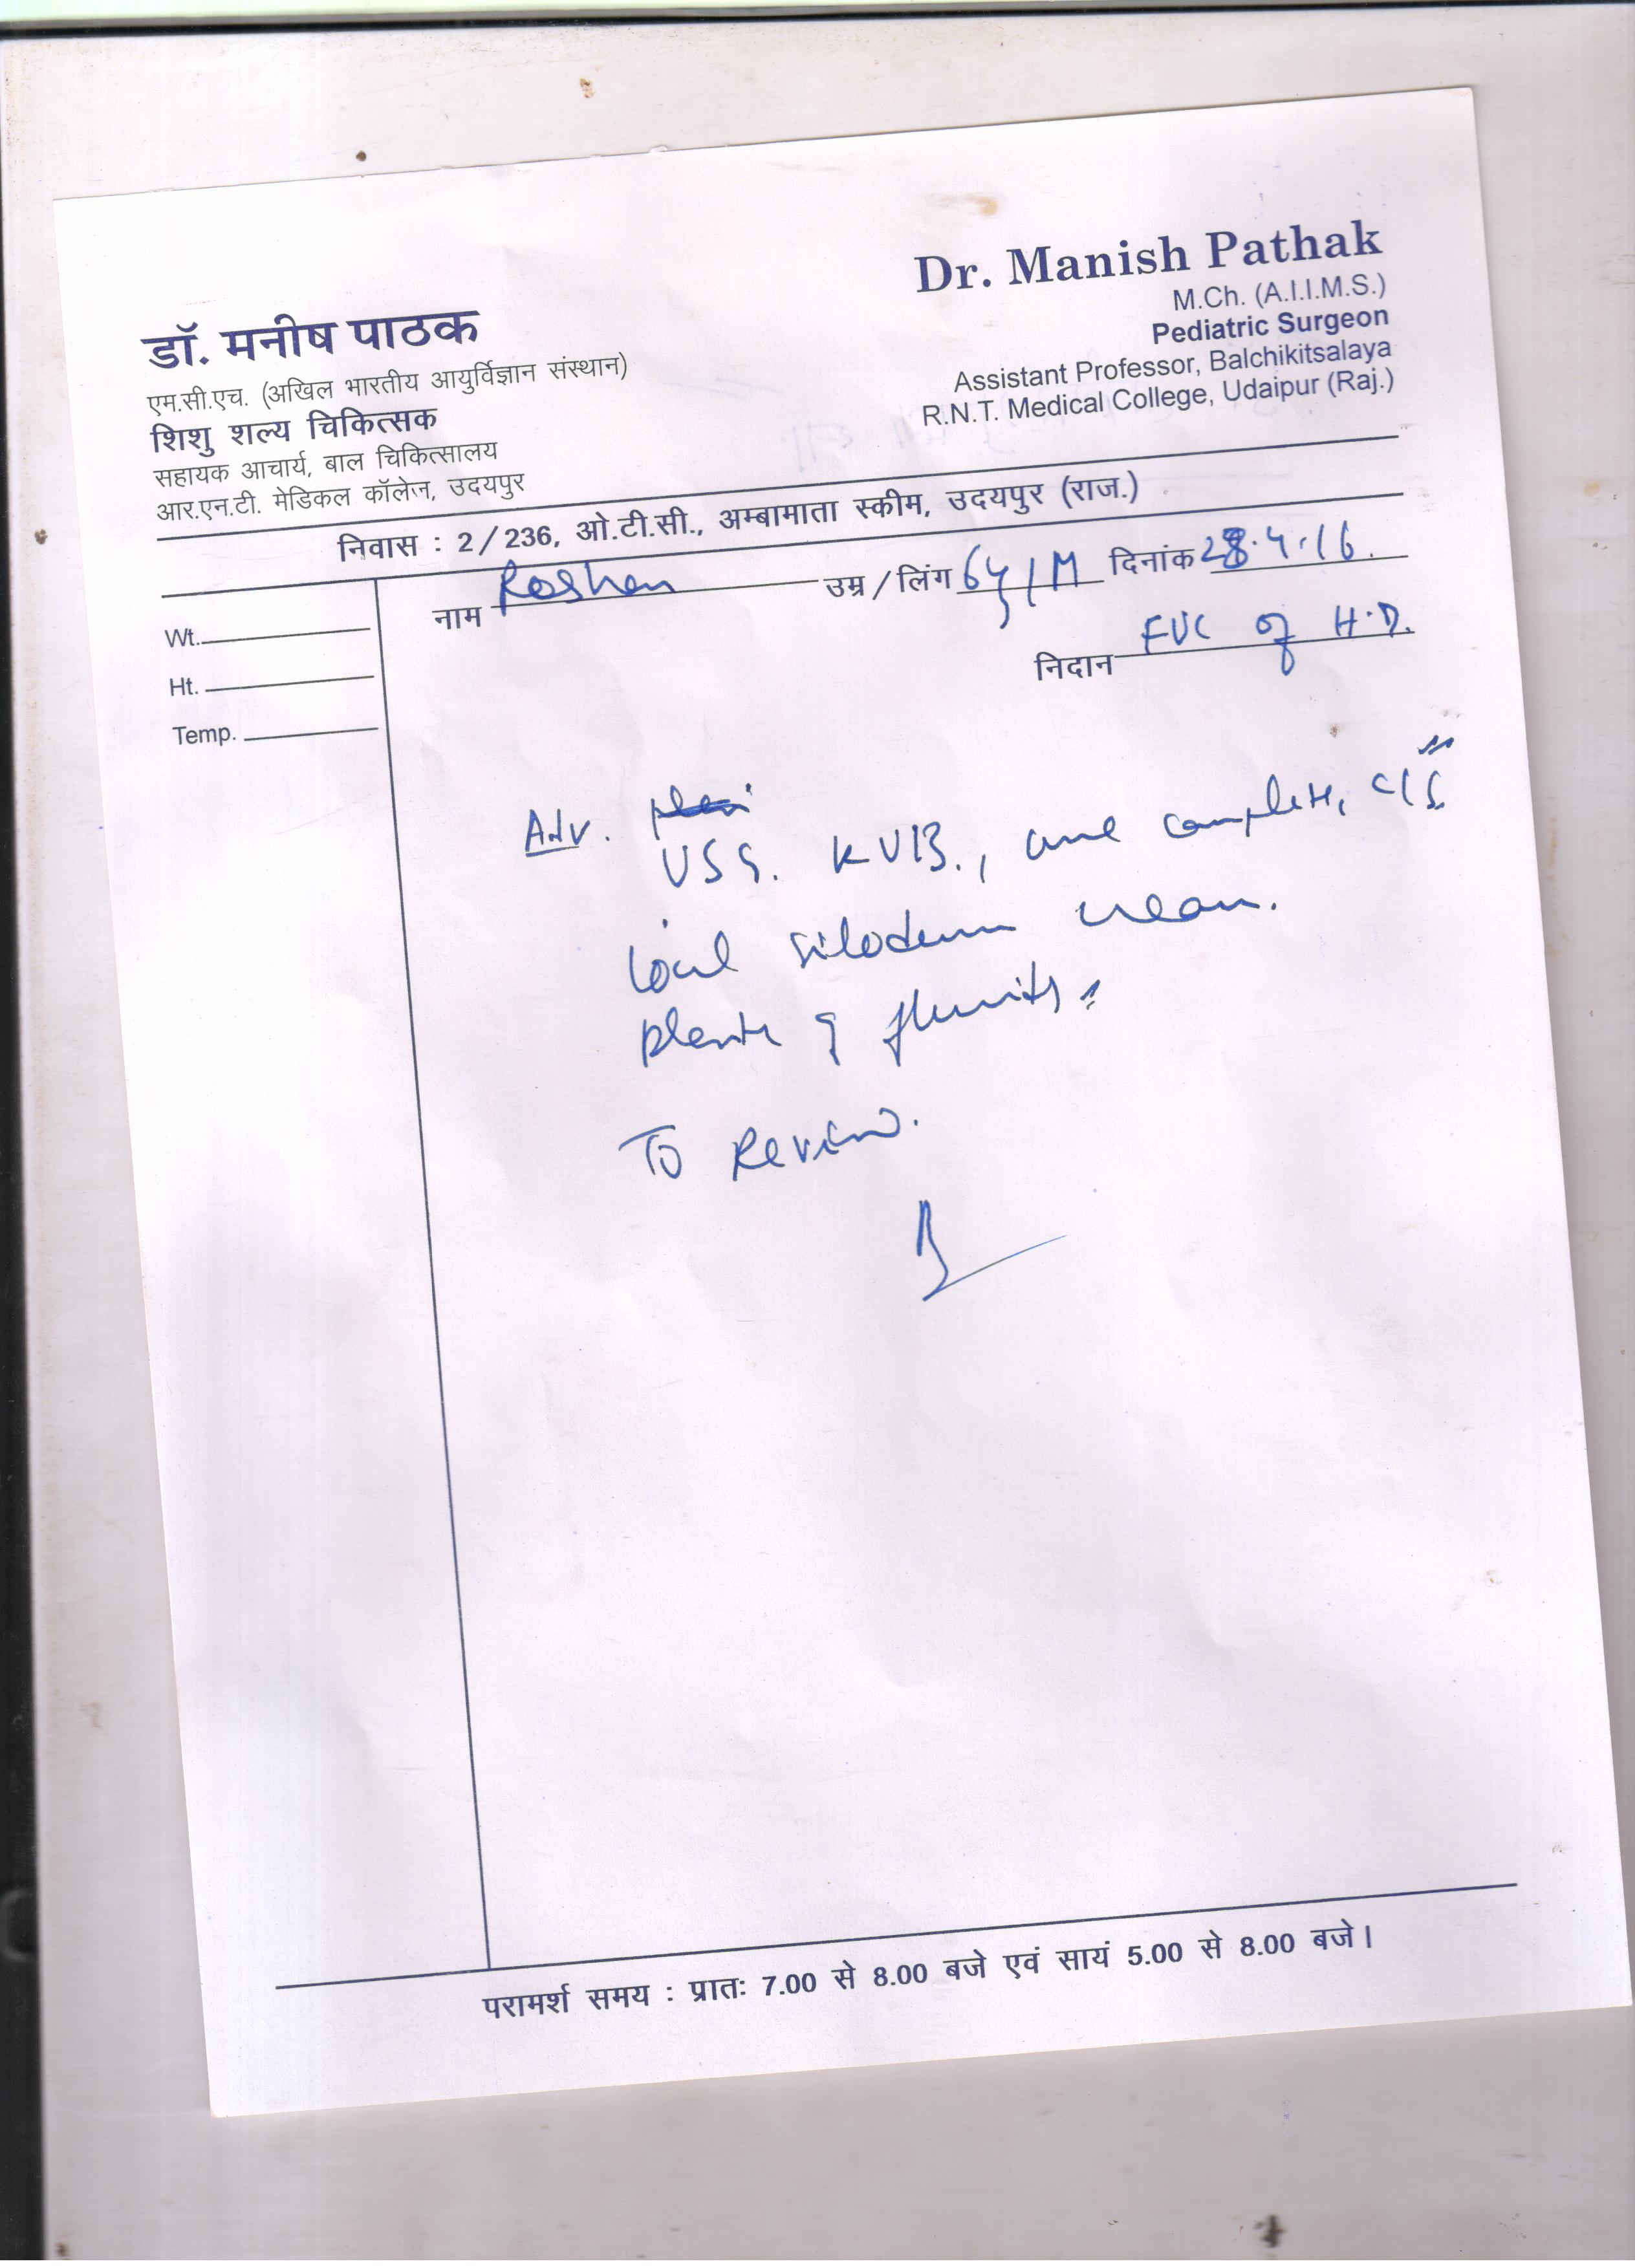 Dr. Manish Pathak
M.Ch. (A.I.I.M.S.)
Pediatric Surgeon
Assistant Professor, Balchikitsalaya
R.N.T. Medical College, Udaipur (Raj.)
डॉ. मनीष पाठक
एम.सी.एच. (अखिल भारतीय आयुर्विज्ञान संस्थान)
शिशु शल्य चिकित्सक
सहायक आचार्य, बाल चिकित्सालय
आर.एन.टी. मेडिकल कॉलेज, उदयपुर
निवास : 2/236, ओ.टी.सी., अम्बामाता स्कीम, उदयपुर (राज.)
नाम Roshan उम्र/लिंग 6y/M दिनांक 28.4.16.
निदान FUC of H.D.
Wt.
Ht.
Temp.
Adv.
USG. KUB., complete, C/S
local cream.
plenty of
To Review.
परामर्श समय : प्रातः 7.00 से 8.00 बजे एवं सायं 5.00 से 8.00 बजे।